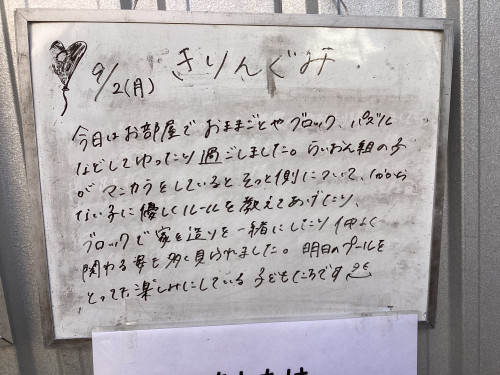 9/2(月) きりんぐみ
今日はお部屋で おままごとや ブロック、パズル
などしてゆったり過ごしました。らいおん組の子
が マンカラをしているとそっと側について、
ない子に優しくルールを教えてあげたり、
ブロックで家を造りを一緒にしたり 仲よく
関わる姿も多く見られました。明日のプールを
とっても楽しみにしている 子どもたちです